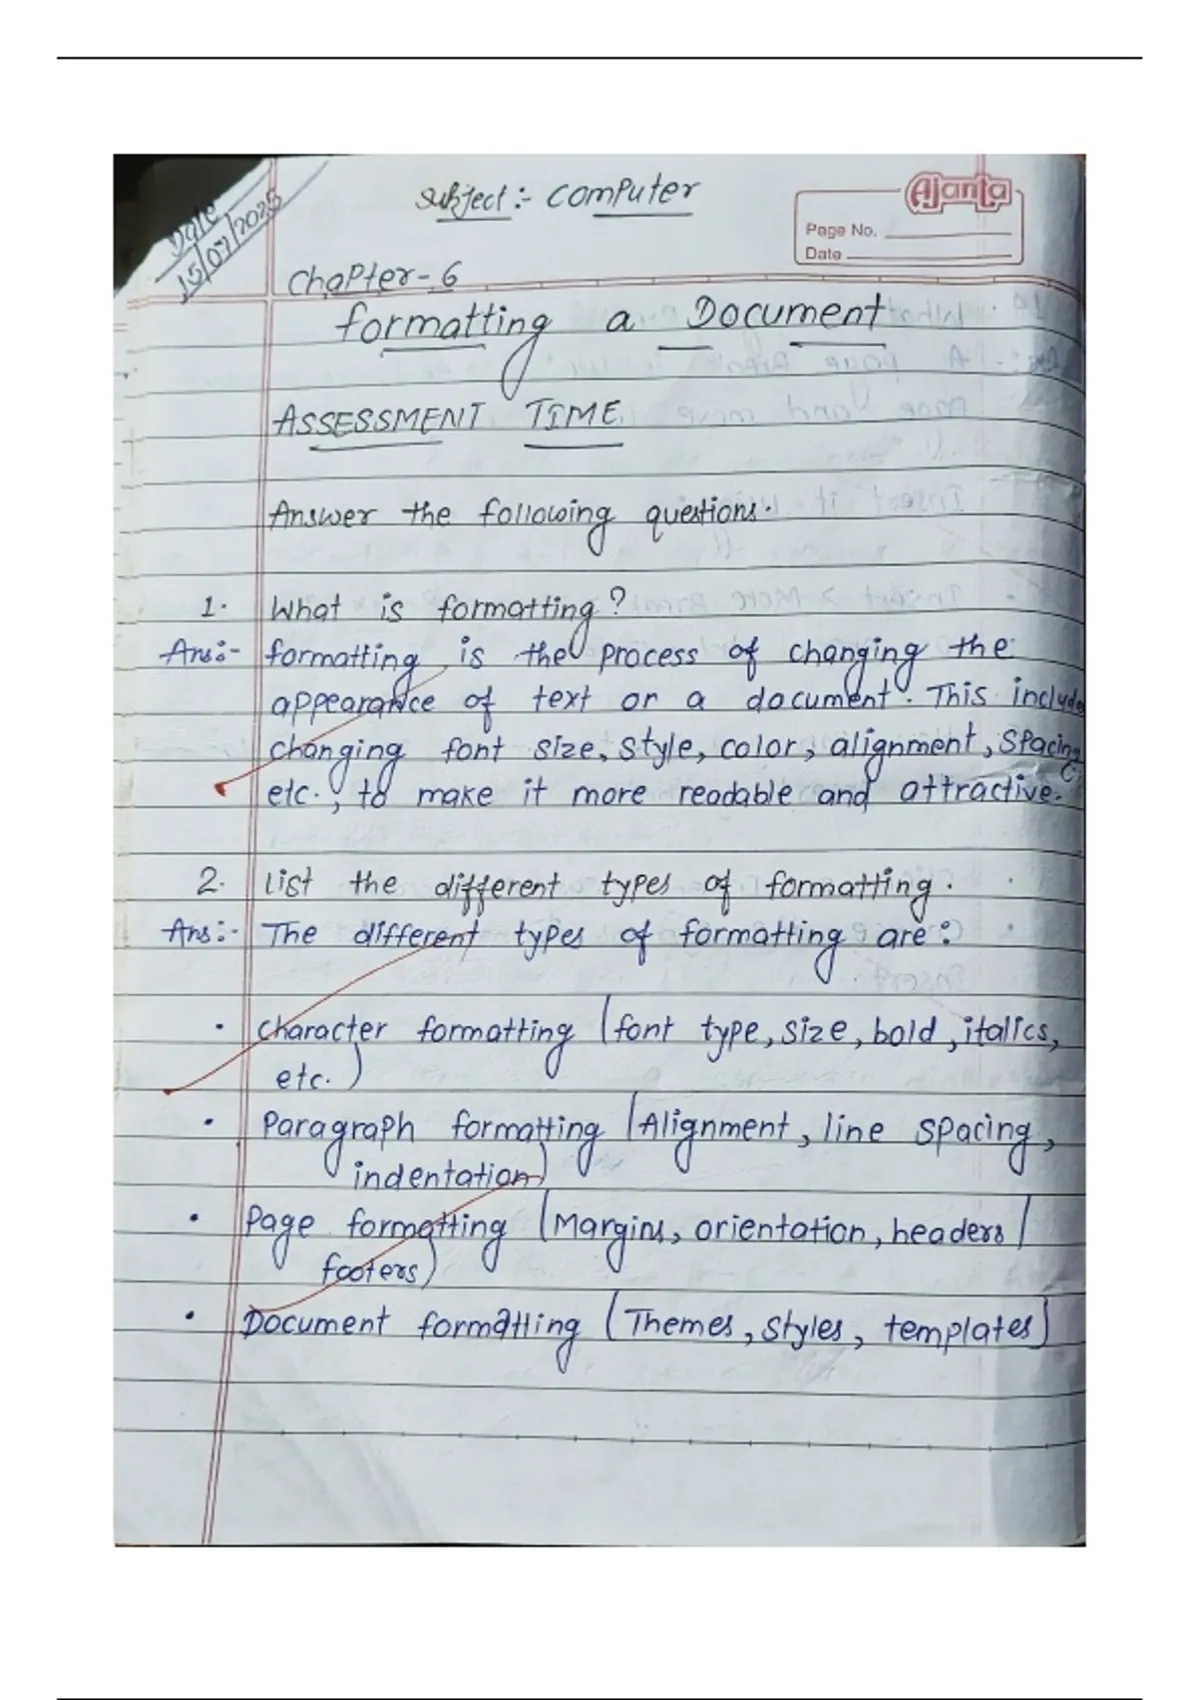 Date
15/07/2025
Subject :- Computer
Ajanta
Page No.
Date
Chapter - 6
formatting a Document
ASSESSMENT TIME
Answer the following questions.
1. What is formatting ?
Ans:- formatting is the process of changing the
appearance of text or a document. This include
changing font size, style, color, alignment, spacing
etc., to make it more readable and attractive.
2. List the different types of formatting.
Ans:- The different types of formatting are :
• Character formatting (font type, size, bold, italics,
etc.)
• Paragraph formatting (Alignment, line spacing,
indentation)
• Page formatting (Margins, orientation, headers /
footers)
• Document formatting (Themes, styles, templates)